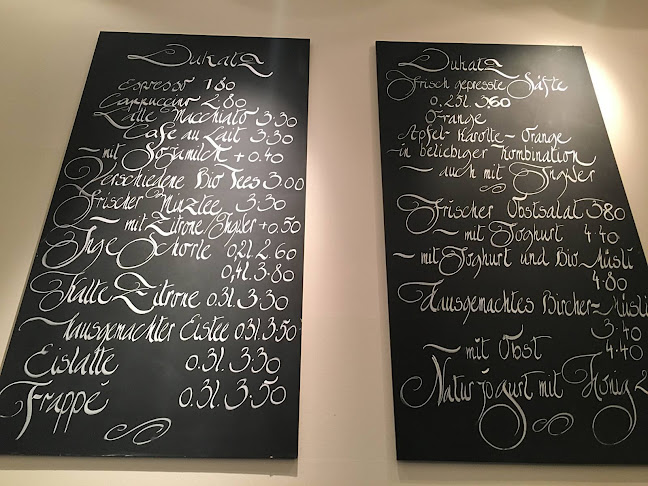 Dukatz
Espresso 1.80
Cappuccino 2.80
Latte Macchiato 3.30
Cafe au Lait 3.30
- mit Sojamilch + 0.40
Verschiedene Bio Tees 3.00
Frischer Minztee 3.30
- mit Zitrone/Ingwer + 0.50
Schorle 0,2l 2.60
0,4l 3.80
Zitrone 0.3l 3.30
Hausgemachter Eistee 0.3l 3.50
Eislatte 0.3l 3.30
Frappé 0.3l 3.50
Dukatz
Frisch gepresste Säfte
0,25l 3.60
Orange
Apfel-Karotte-Orange
in beliebiger Kombination
- auch mit Ingwer
Frischer Obstsalat 3.80
- mit Joghurt 4.40
- mit Joghurt und Bio Müsli
4.80
Hausgemachtes Bircher-Müsli
3.40
- mit Obst 4.40
Natur jogurt mit Honig 2